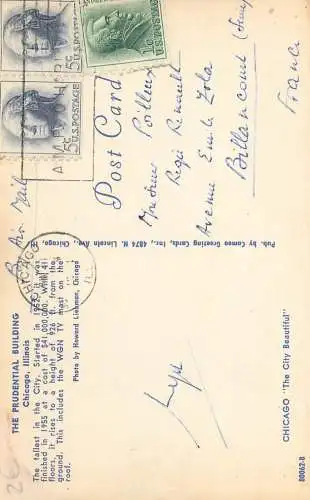 THE PRUDENTIAL BUILDING
Chicago, Illinois
The tallest in the City. Started in 1952, it was
finished in 1955 at a cost of $41,000,000. With 41
floors, it rises to a height of 926 ft. from the
ground. This includes the WGN TV mast on the
roof.
Photo by Howard Liebman, Chicago
CHICAGO "The City Beautiful"
80062-B
Pub. by Cameo Greeting Cards, Inc., 4874 N. Lincoln Ave., Chicago,
Post Card
By Air Mail
Monsieur
Régie Renault
Avenue Emile Zola
Billancourt (Seine)
France
5c U.S. POSTAGE
5c U.S. POSTAGE
U.S. POSTAGE
CHICAGO